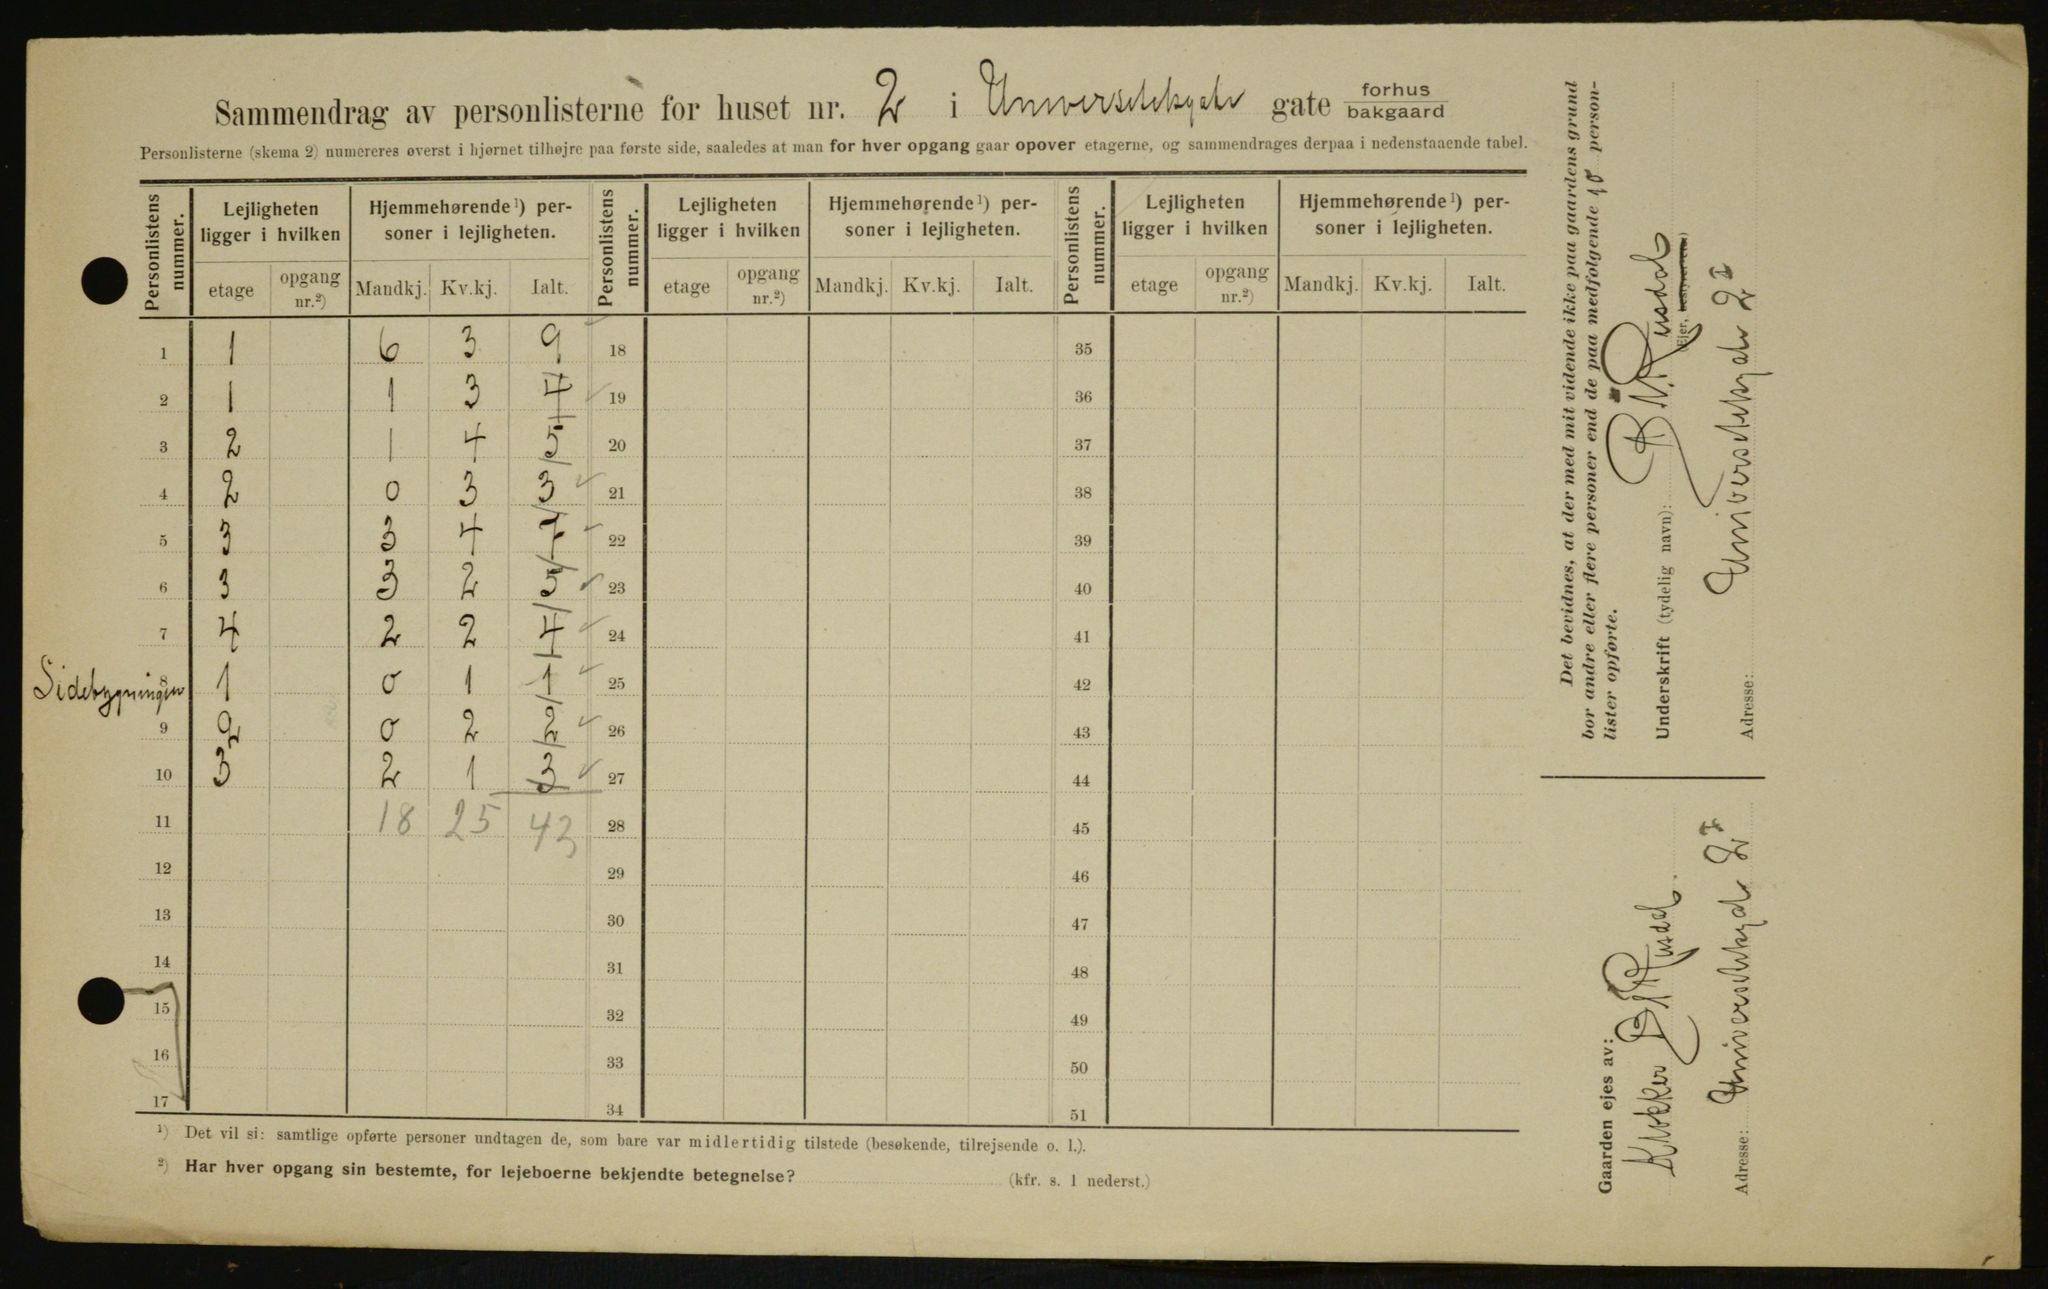 Sammendrag av personlisterne for huset nr. 2 i Universitetsgate gate forhus
bakgaard
Personlisterne (skema 2) numereres øverst i hjørnet tilhøjre paa første side, saaledes at man for hver opgang gaar opover etagerne, og sammendrages derpaa i nedenstaaende tabel.
Personlistens nummer. Lejligheten ligger i hvilken Hjemmehørende ¹) personer i lejligheten. Personlistens nummer. Lejligheten ligger i hvilken Hjemmehørende ¹) personer i lejligheten. Personlistens nummer. Lejligheten ligger i hvilken Hjemmehørende ¹) personer i lejligheten.
etage opgang nr.²) Mandkj. Kv.kj. Ialt. etage opgang nr.²) Mandkj. Kv.kj. Ialt. etage opgang nr.²) Mandkj. Kv.kj. Ialt.
1 1 6 3 9 18 35
2 1 1 3 4 19 36
3 2 1 4 5 20 37
4 2 0 3 3 21 38
5 3 3 4 7 22 39
6 3 3 2 5 23 40
7 4 2 2 4 24 41
Sidebygningen 8 1 0 1 1 25 42
9 2 0 2 2 26 43
10 3 2 1 3 27 44
11 18 25 43 28 45
12 29 46
13 30 47
14 31 48
15 32 49
16 33 50
17 34 51
¹) Det vil si: samtlige opførte personer undtagen de, som bare var midlertidig tilstede (besøkende, tilrejsende o. l.).
²) Har hver opgang sin bestemte, for lejeboerne bekjendte betegnelse? (kfr. s. 1 nederst.)
Det bevidnes, at der med mit vidende ikke paa gaardens grund
bor andre eller flere personer end de paa medfølgende 10 person-
lister opførte.
Underskrift (tydelig navn): Rusdal
(Ejer, bestyrer etc.)
Adresse: Universitetsgade 2 I
Gaarden ejes av:
Klokker Rusdal
Adresse: Universitetsgade 2 I